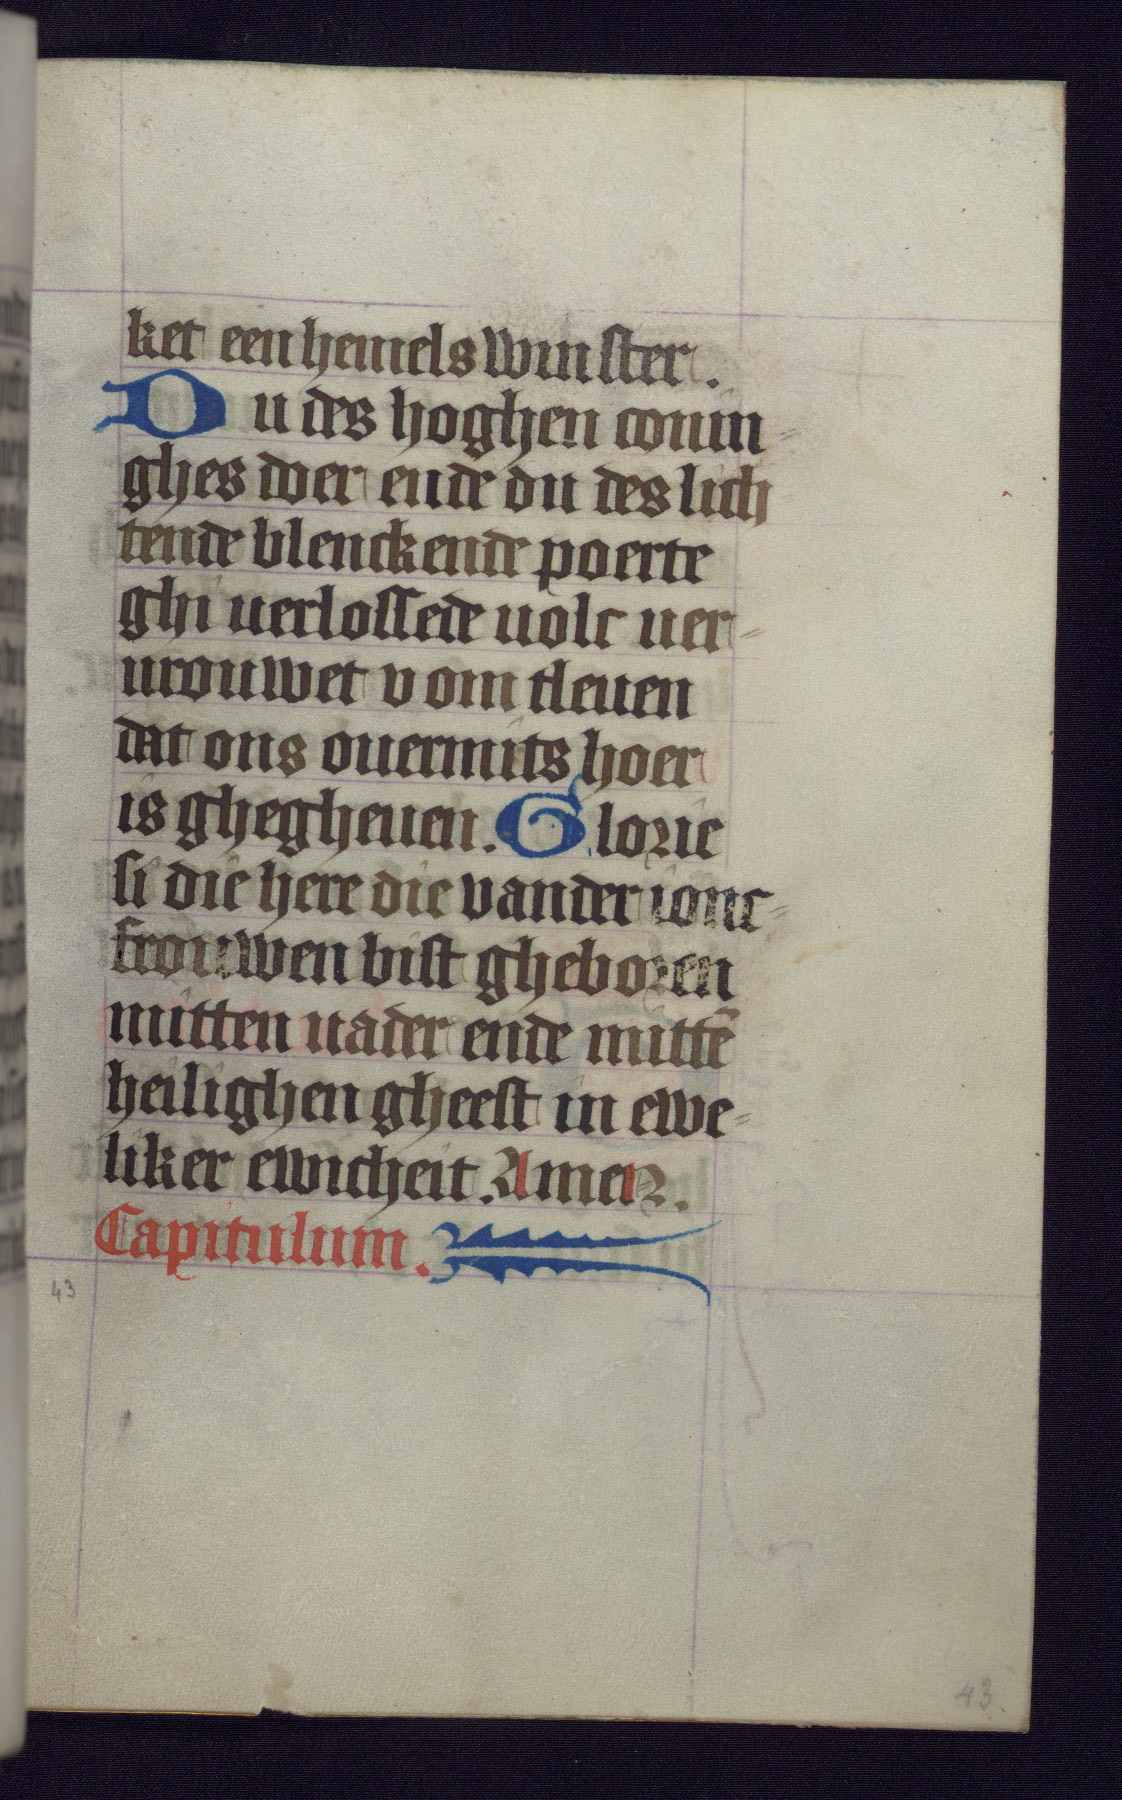 ket een hemels winster.
Du des hoghen conin-
ghes doer ende du des lich-
tende blenckende poerte
ghi verlossede volc ver-
vrouwet vom tleuen
dat ons ouermits hoer
is ghegheuen. Glorie
si die here die vander ionc-
frouwen bist gheboren
mitten uader ende mittē
heilighen gheest in ewe-
liker ewicheit. Amen.
Capitulum.
43
43